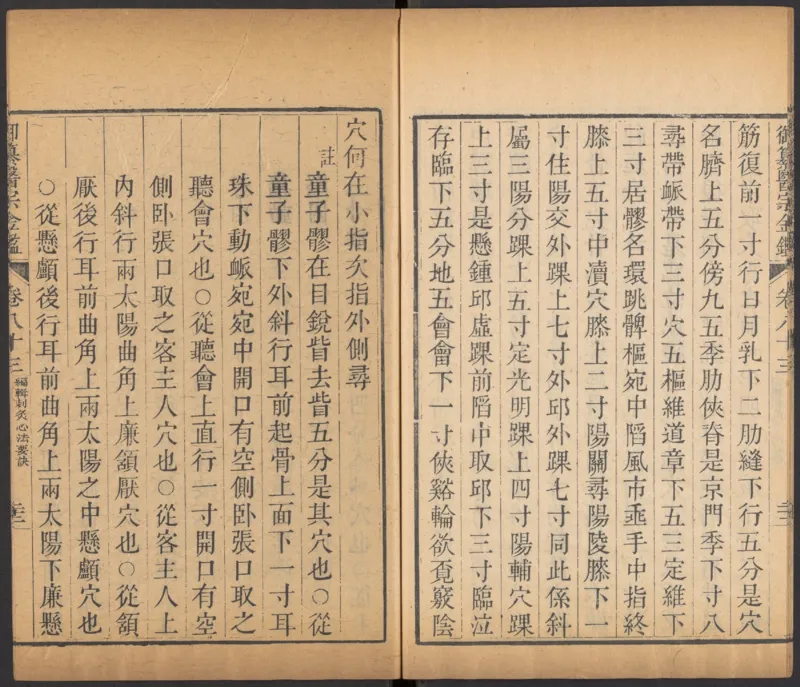 御纂醫宗金鑑 卷八十三
筋復前一寸行日月乳下二肋縫下行五分是穴
名臍上五分傍九五季肋俠脊是京門季下寸八
尋帶䘑帶下三寸穴五樞維道章下五三定維下
三寸居髎名環跳髀樞宛中陷風市垂手中指終
膝上五寸中瀆穴膝上二寸陽關尋陽陵膝下一
寸住陽交外踝上七寸外邱外踝七寸同此係斜
屬三陽分踝上五寸定光明踝上四寸陽輔穴踝
上三寸是懸鍾邱虛踝前陷中取邱下三寸臨泣
存臨下五分地五會會下一寸俠谿輪欲覔竅陰
穴何在小指次指外側尋
註 童子髎在目銳眥去眥五分是其穴也○從
童子髎下外斜行耳前起骨上面下一寸耳
珠下動䘑宛宛中開口有空側卧張口取之
聽會穴也○從聽會上直行一寸開口有空
側卧張口取之客主人穴也○從客主人上
內斜行兩太陽曲角上廉頷厭穴也○從頷
厭後行耳前曲角上兩太陽之中懸顱穴也
○從懸顱後行耳前曲角上兩太陽下廉懸
御纂醫宗金鑑 卷八十三 編輯刺灸心法要訣